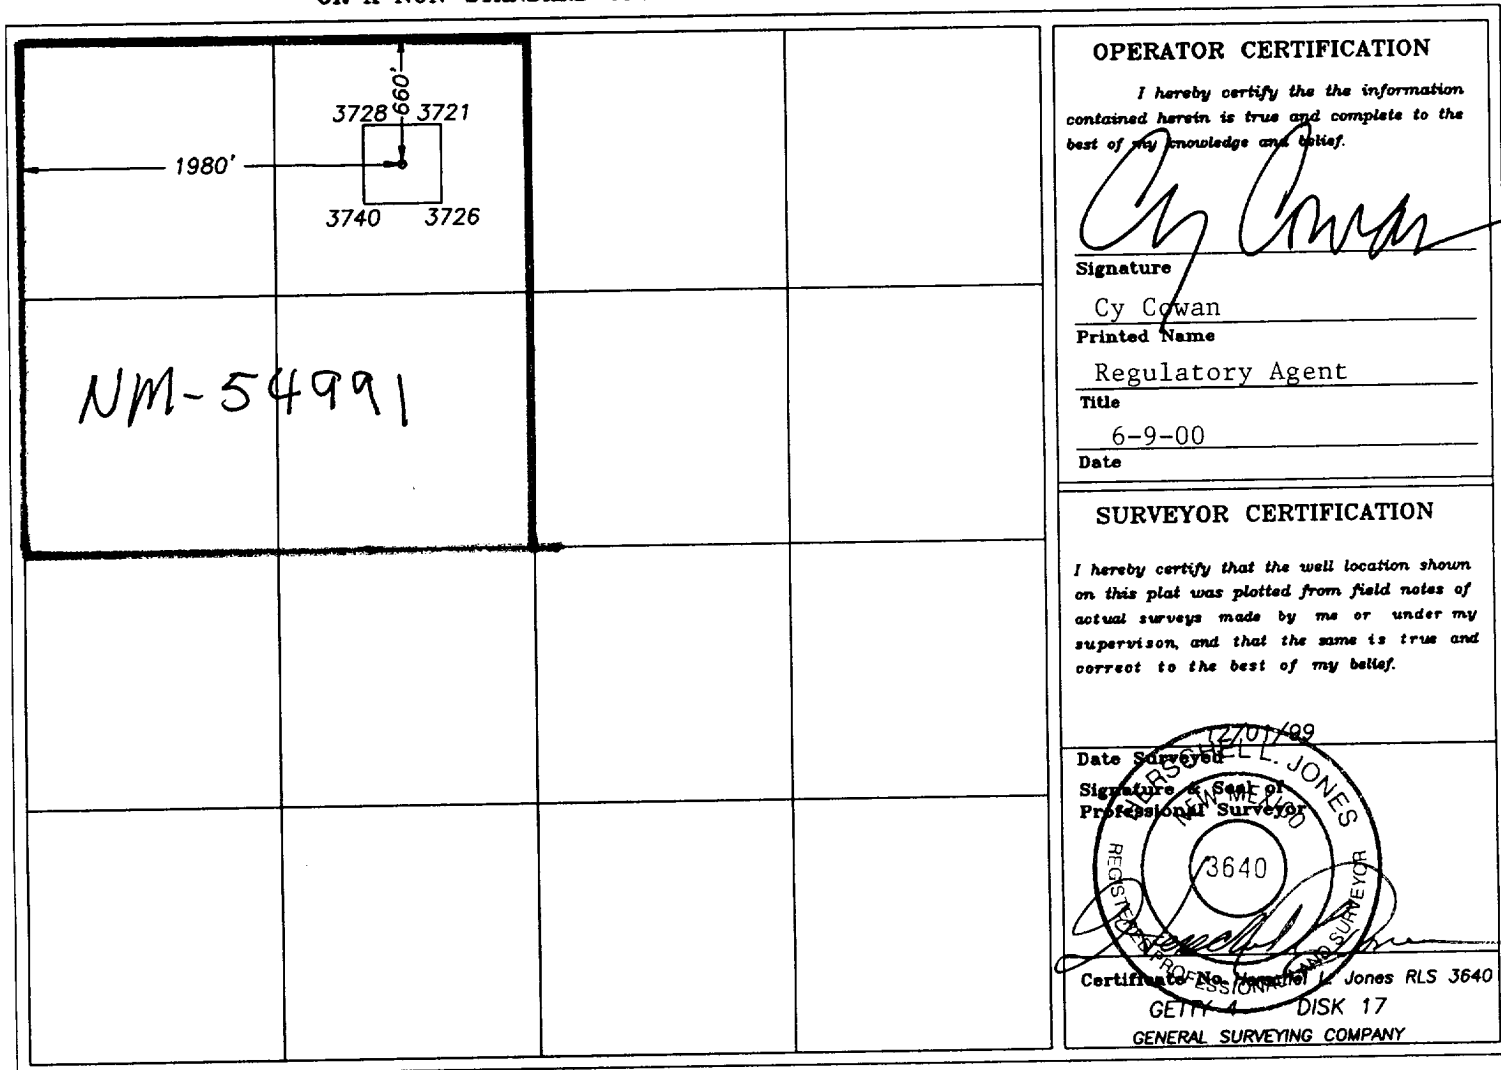 660'
3728 3721
1980'
3740 3726
NM-54991
OPERATOR CERTIFICATION
I hereby certify the the information
contained herein is true and complete to the
best of my knowledge and belief.
Cy Cowan
Signature
Cy Cowan
Printed Name
Regulatory Agent
Title
6-9-00
Date
SURVEYOR CERTIFICATION
I hereby certify that the well location shown
on this plat was plotted from field notes of
actual surveys made by me or under my
supervison, and that the same is true and
correct to the best of my belief.
12/01/99
Date Surveyed
Signature & Seal of
Professional Surveyor
HERSCHEL L. JONES
NEW MEXICO
3640
REGISTERED PROFESSIONAL LAND SURVEYOR
Certificate No. Herschel L. Jones RLS 3640
GETTY 4 DISK 17
GENERAL SURVEYING COMPANY